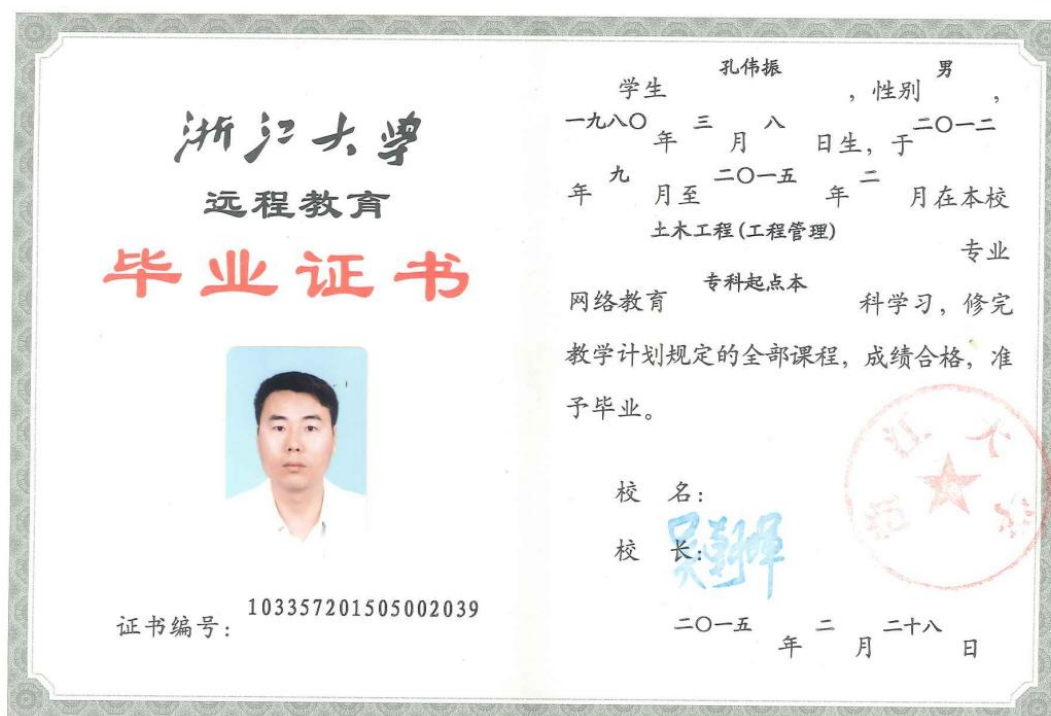 浙江大学
远程教育
毕业证书
证书编号：103357201505002039
学生 孔伟振 ，性别 男 ，
一九八〇年 三 月 八 日生，于二〇一二
年 九 月至 二〇一五 年 二 月在本校
土木工程(工程管理) 专业
网络教育 专科起点本 科学习，修完
教学计划规定的全部课程，成绩合格，准
予毕业。
校 名：
校 长：吴朝晖
二〇一五 年 二 月 二十八 日
浙江大学